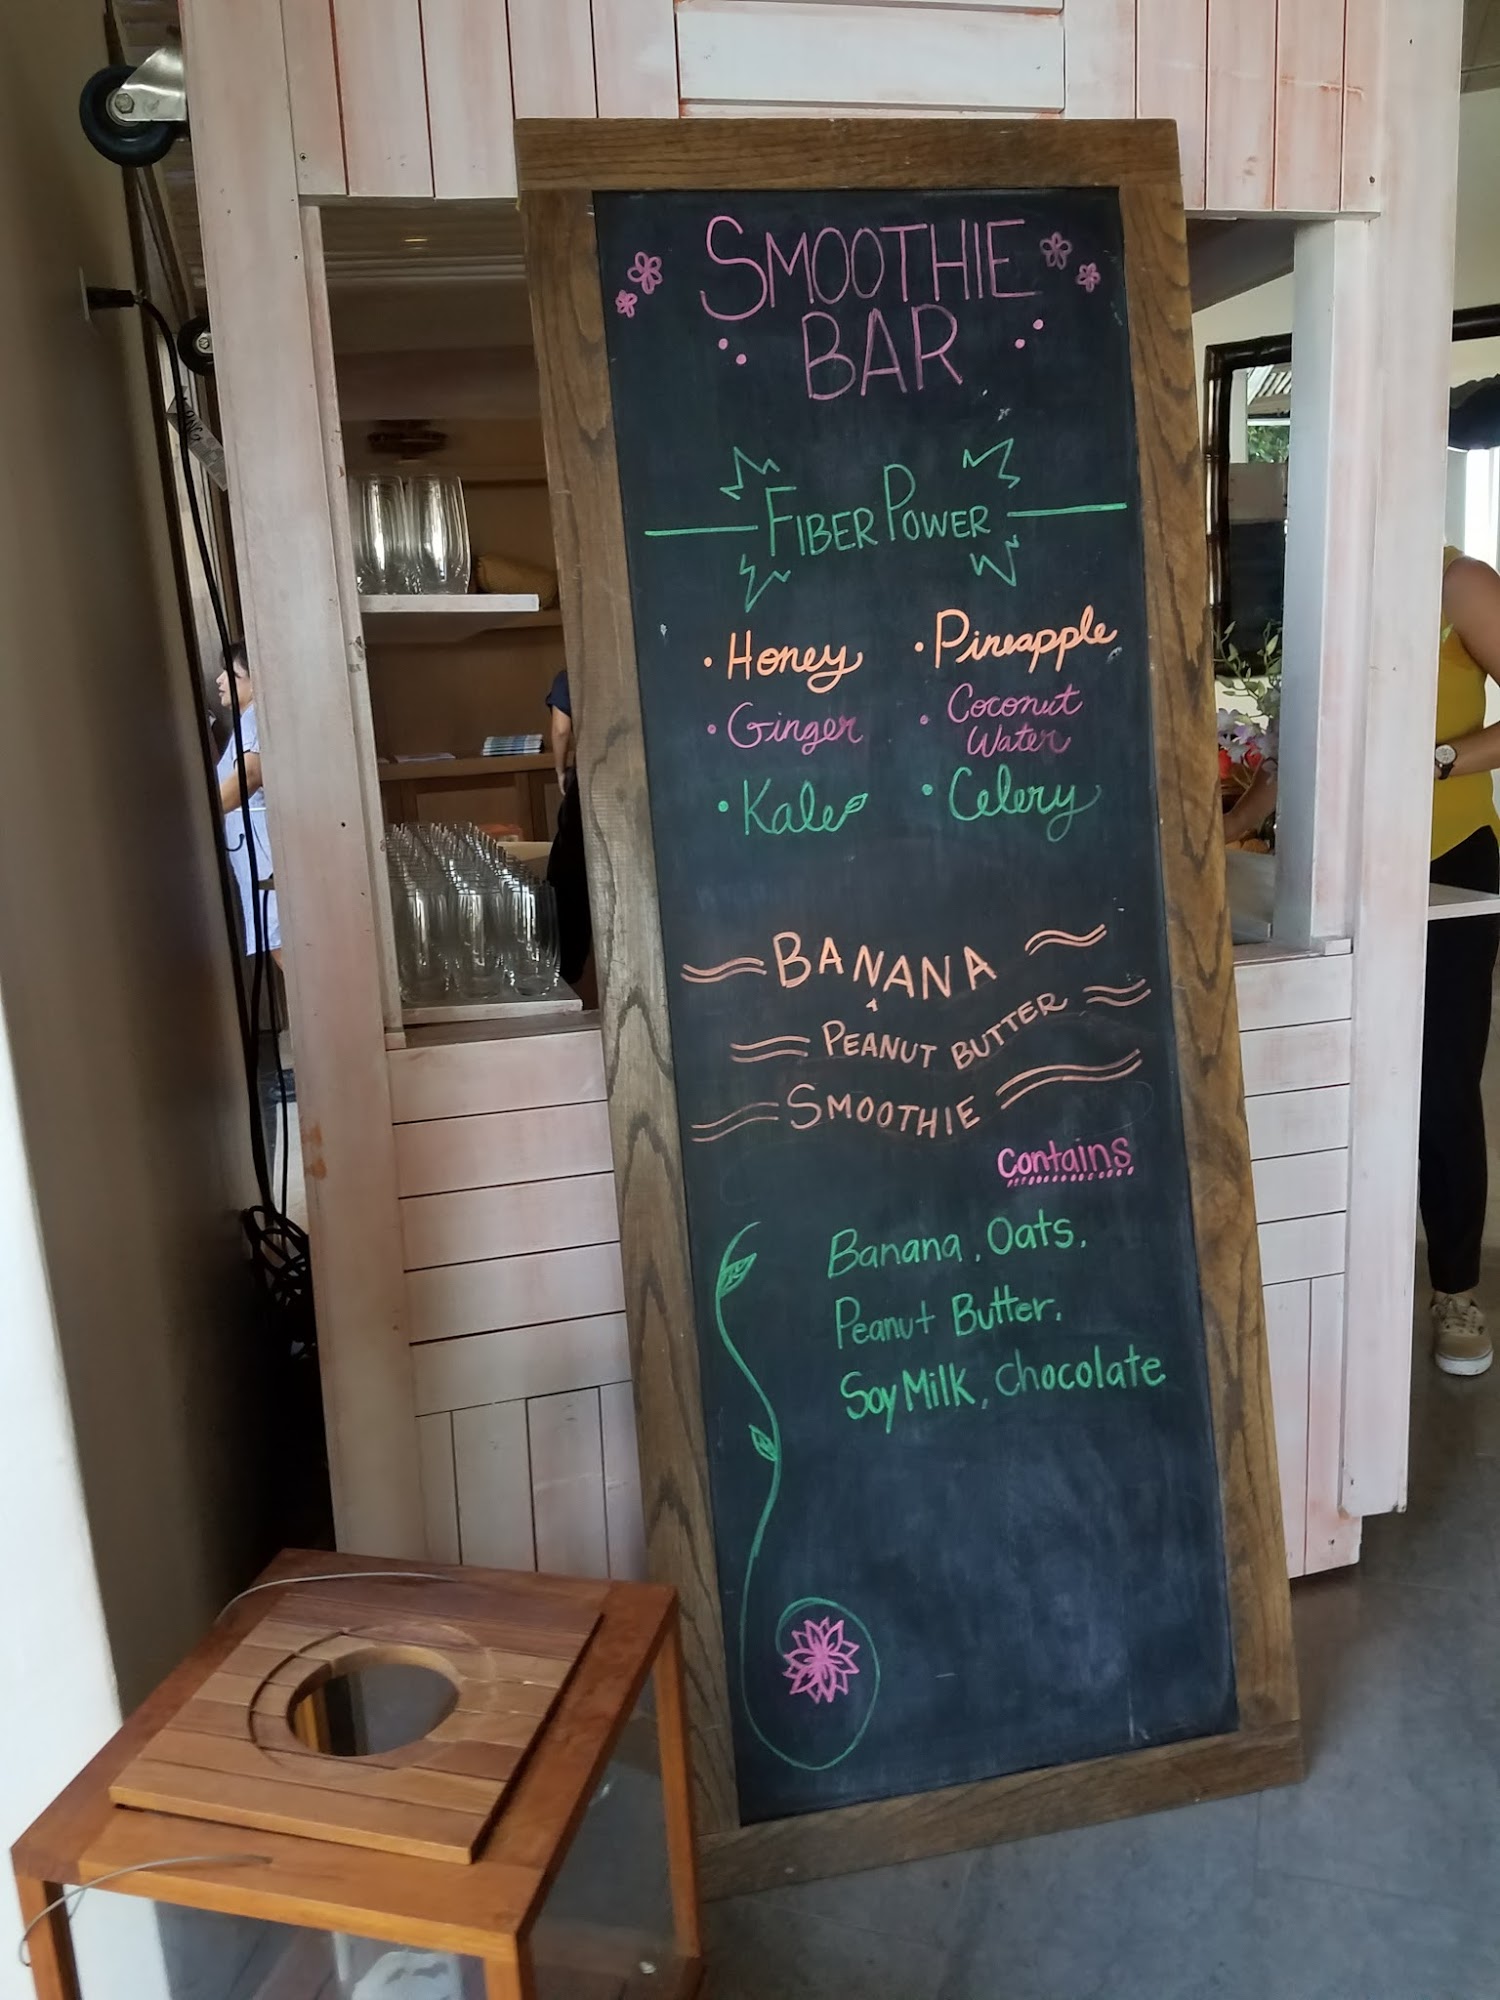 SMOOTHIE
BAR
FIBER POWER
• Honey • Pineapple
• Ginger • Coconut
Water
• Kale • Celery
BANANA
+
PEANUT BUTTER
SMOOTHIE
Contains
Banana, Oats,
Peanut Butter,
Soy Milk, Chocolate